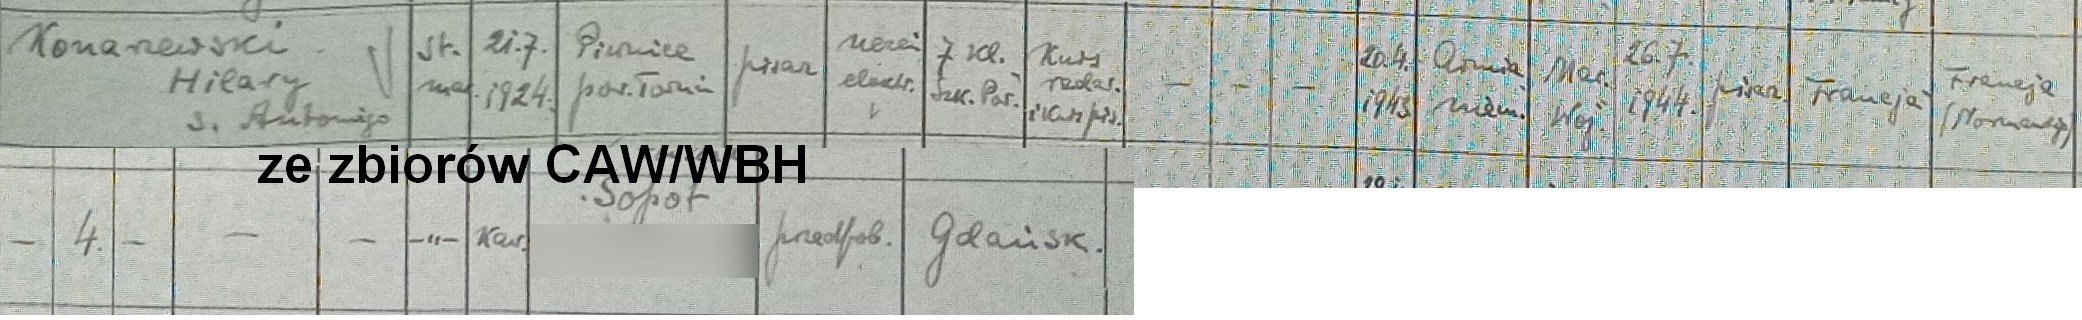 Konarzewski
Hilary
s. Antoniego
st. mar.
21.7. 1924.
Piwnice pow. Toruń
pisar
uczeń elektr.
7 kl. Szk. Pow.
Kurs
radar.
i kurs pis.
- - -
20.4. 1943
Armia niem.
Mar. Woj.
26.7. 1944.
pisar
Francja
Francja (Normandja)
ze zbiorów CAW/WBH
- 4. - - - -"- Kaw.
Sopot
przedpob.
Gdańsk.